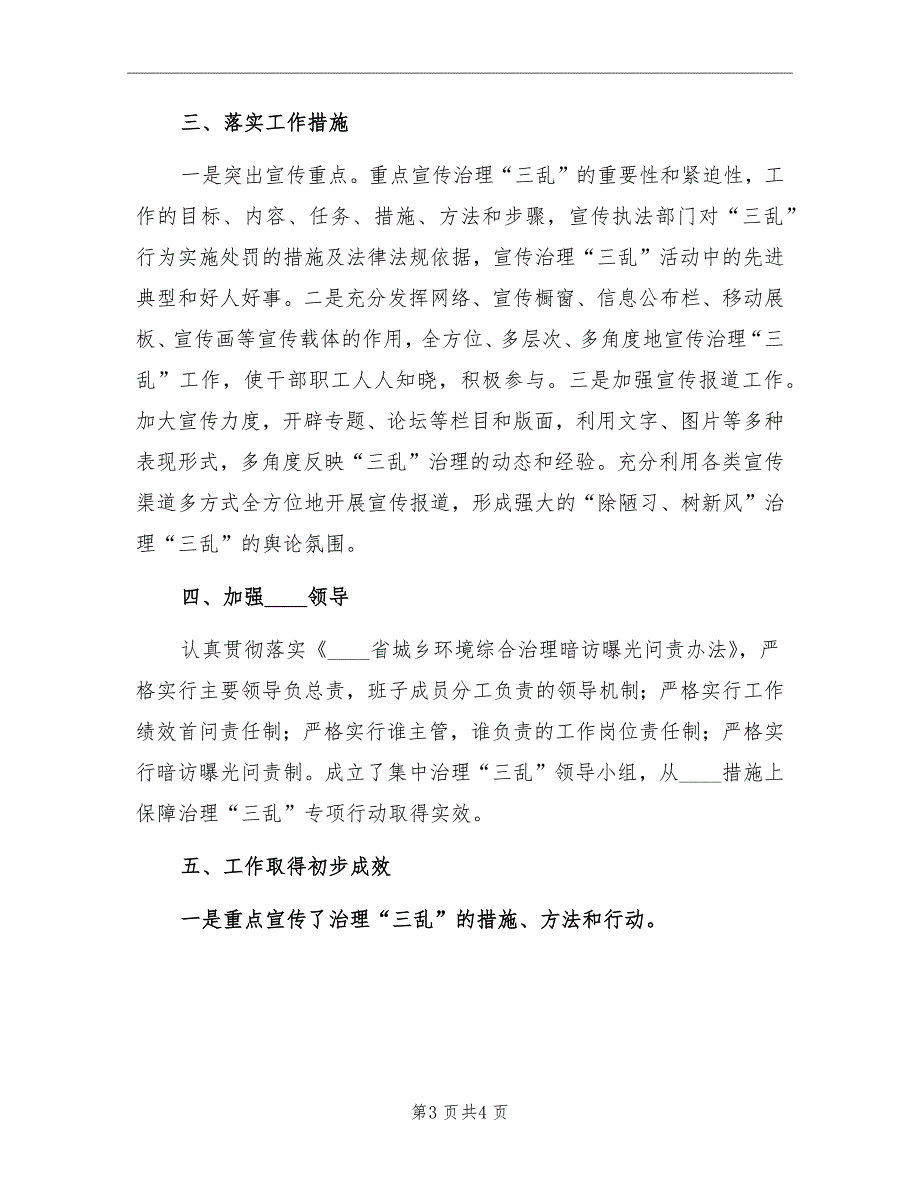 三、落实工作措施
一是突出宣传重点。重点宣传治理“三乱”的重要性和紧迫性，工
作的目标、内容、任务、措施、方法和步骤，宣传执法部门对“三乱”
行为实施处罚的措施及法律法规依据，宣传治理“三乱”活动中的先进
典型和好人好事。二是充分发挥网络、宣传橱窗、信息公布栏、移动展
板、宣传画等宣传载体的作用，全方位、多层次、多角度地宣传治理“三
乱”工作，使干部职工人人知晓，积极参与。三是加强宣传报道工作。
加大宣传力度，开辟专题、论坛等栏目和版面，利用文字、图片等多种
表现形式，多角度反映“三乱”治理的动态和经验。充分利用各类宣传
渠道多方式全方位地开展宣传报道，形成强大的“除陋习、树新风”治
理“三乱”的舆论氛围。
四、加强____领导
认真贯彻落实《____省城乡环境综合治理暗访曝光问责办法》，严
格实行主要领导负总责，班子成员分工负责的领导机制；严格实行工作
绩效首问责任制；严格实行谁主管，谁负责的工作岗位责任制；严格实
行暗访曝光问责制。成立了集中治理“三乱”领导小组，从____措施上
保障治理“三乱”专项行动取得实效。
五、工作取得初步成效
一是重点宣传了治理“三乱”的措施、方法和行动。
第3 页共4 页